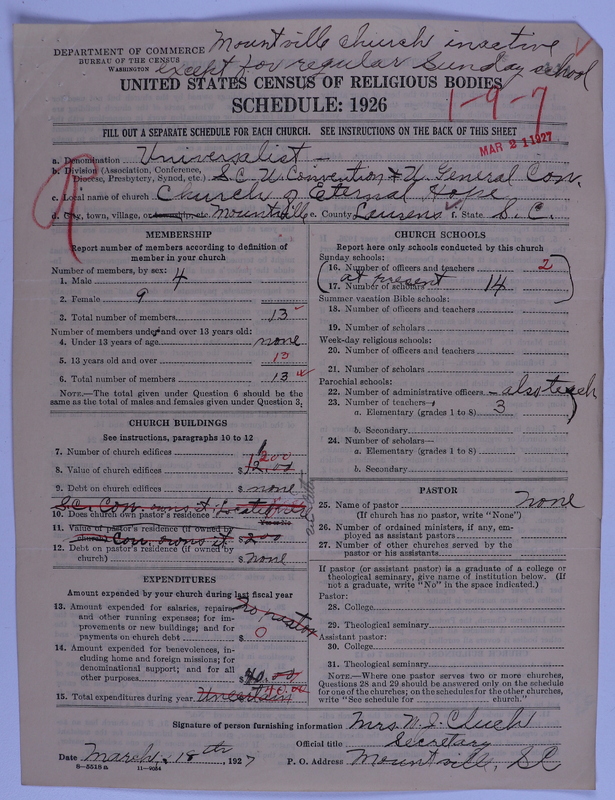 Mountville church inactive
DEPARTMENT OF COMMERCE
BUREAU OF THE CENSUS
WASHINGTON
except for regular Sunday school
UNITED STATES CENSUS OF RELIGIOUS BODIES
SCHEDULE: 1926
1-9-7
FILL OUT A SEPARATE SCHEDULE FOR EACH CHURCH. SEE INSTRUCTIONS ON THE BACK OF THIS SHEET
MAR 21 1927
a. Denomination Universalist
b. Division (Association, Conference, Diocese, Presbytery, Synod, etc.) S.C. U. Convention & U. General Con.
c. Local name of church Church of Eternal Hope
d. City, town, village, or township, etc. Mountville e. County Laurens f. State S. C.
MEMBERSHIP
Report number of members according to definition of
member in your church
Number of members, by sex:
1. Male 4
2. Female 9
3. Total number of members 13
Number of members under and over 13 years old:
4. Under 13 years of age none
5. 13 years old and over 13
6. Total number of members 13
NOTE.—The total given under Question 6 should be
same as the total of males and females given under Question 3.
CHURCH BUILDINGS
See instructions, paragraphs 10 to 12
7. Number of church edifices 1
8. Value of church edifices $ 1200
9. Debt on church edifices $ none
S.C. Con. owns it
10. Does church own pastor's residence
Yes or No
11. Value of pastor's residence (if owned by
church) Con. owns it $
12. Debt on pastor's residence (if owned by
church) $ none
EXPENDITURES
Amount expended by your church during last fiscal year
13. Amount expended for salaries, repairs, no pastor
and other running expenses; for im-
provements or new buildings; and for
payments on church debt $ 0
14. Amount expended for benevolences, in-
cluding home and foreign missions; for
denominational support; and for all
other purposes $ 40.00
15. Total expenditures during year Uncertain 40.00
CHURCH SCHOOLS
Report here only schools conducted by this church
Sunday schools:
16. Number of officers and teachers 2
at present
17. Number of scholars 14
Summer vacation Bible schools:
18. Number of officers and teachers
19. Number of scholars
Week-day religious schools:
20. Number of officers and teachers
21. Number of scholars
Parochial schools:
22. Number of administrative officers also teach
23. Number of teachers—
a. Elementary (grades 1 to 8) 3
b. Secondary
24. Number of scholars—
a. Elementary (grades 1 to 8)
b. Secondary
PASTOR
25. Name of pastor none
(If church has no pastor, write "None")
26. Number of ordained ministers, if any, em-
ployed as assistant pastors
27. Number of other churches served by the
pastor or his assistants
If pastor (or assistant pastor) is a graduate of a college or
theological seminary, give name of institution below. (If
not a graduate, write "No" in the space indicated.)
Pastor:
28. College
29. Theological seminary
Assistant pastor:
30. College
31. Theological seminary
NOTE.—Where one pastor serves two or more churches,
Questions 28 and 29 should be answered only on the schedule
for one of the churches; on the schedules for the other churches,
write "See schedule for church."
Signature of person furnishing information Mrs. W. J.
Official title Secretary
Date March 18th, 1927 P. O. Address Mountville, SC
8—5518 a 11—9054